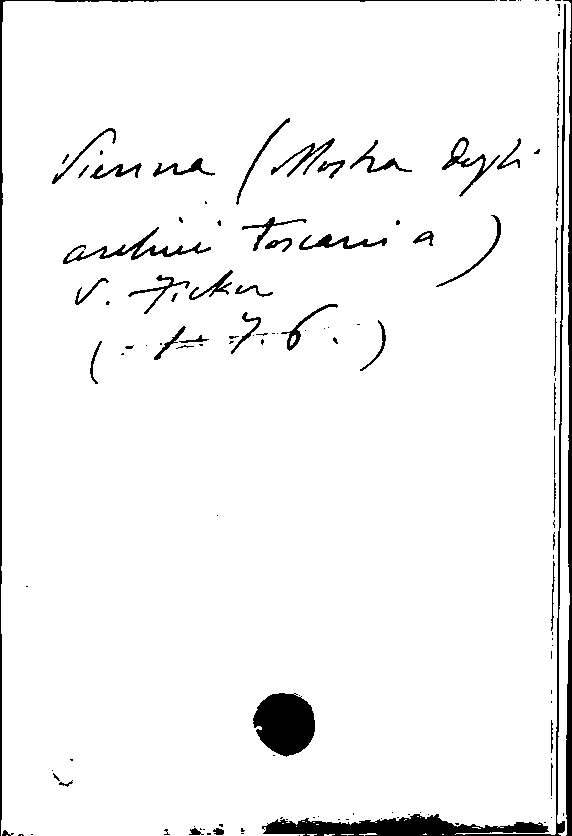 Vienna (Mostra degli
archivi toscani a)
V. Ficker
(